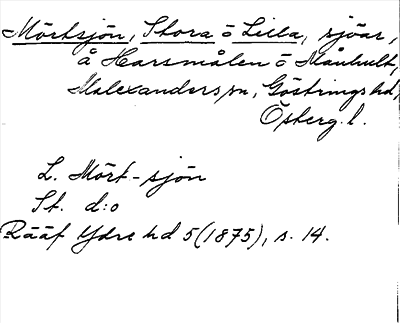 Mörtsjön, Stora o Lilla, sjöar,
å Harsmålen o Månhult,
Malexanders sn, Göstrings hd,
Österg. l.
L. Mört-sjön
St. d:o
Rääf Ydre hd 5 (1875), s. 14.